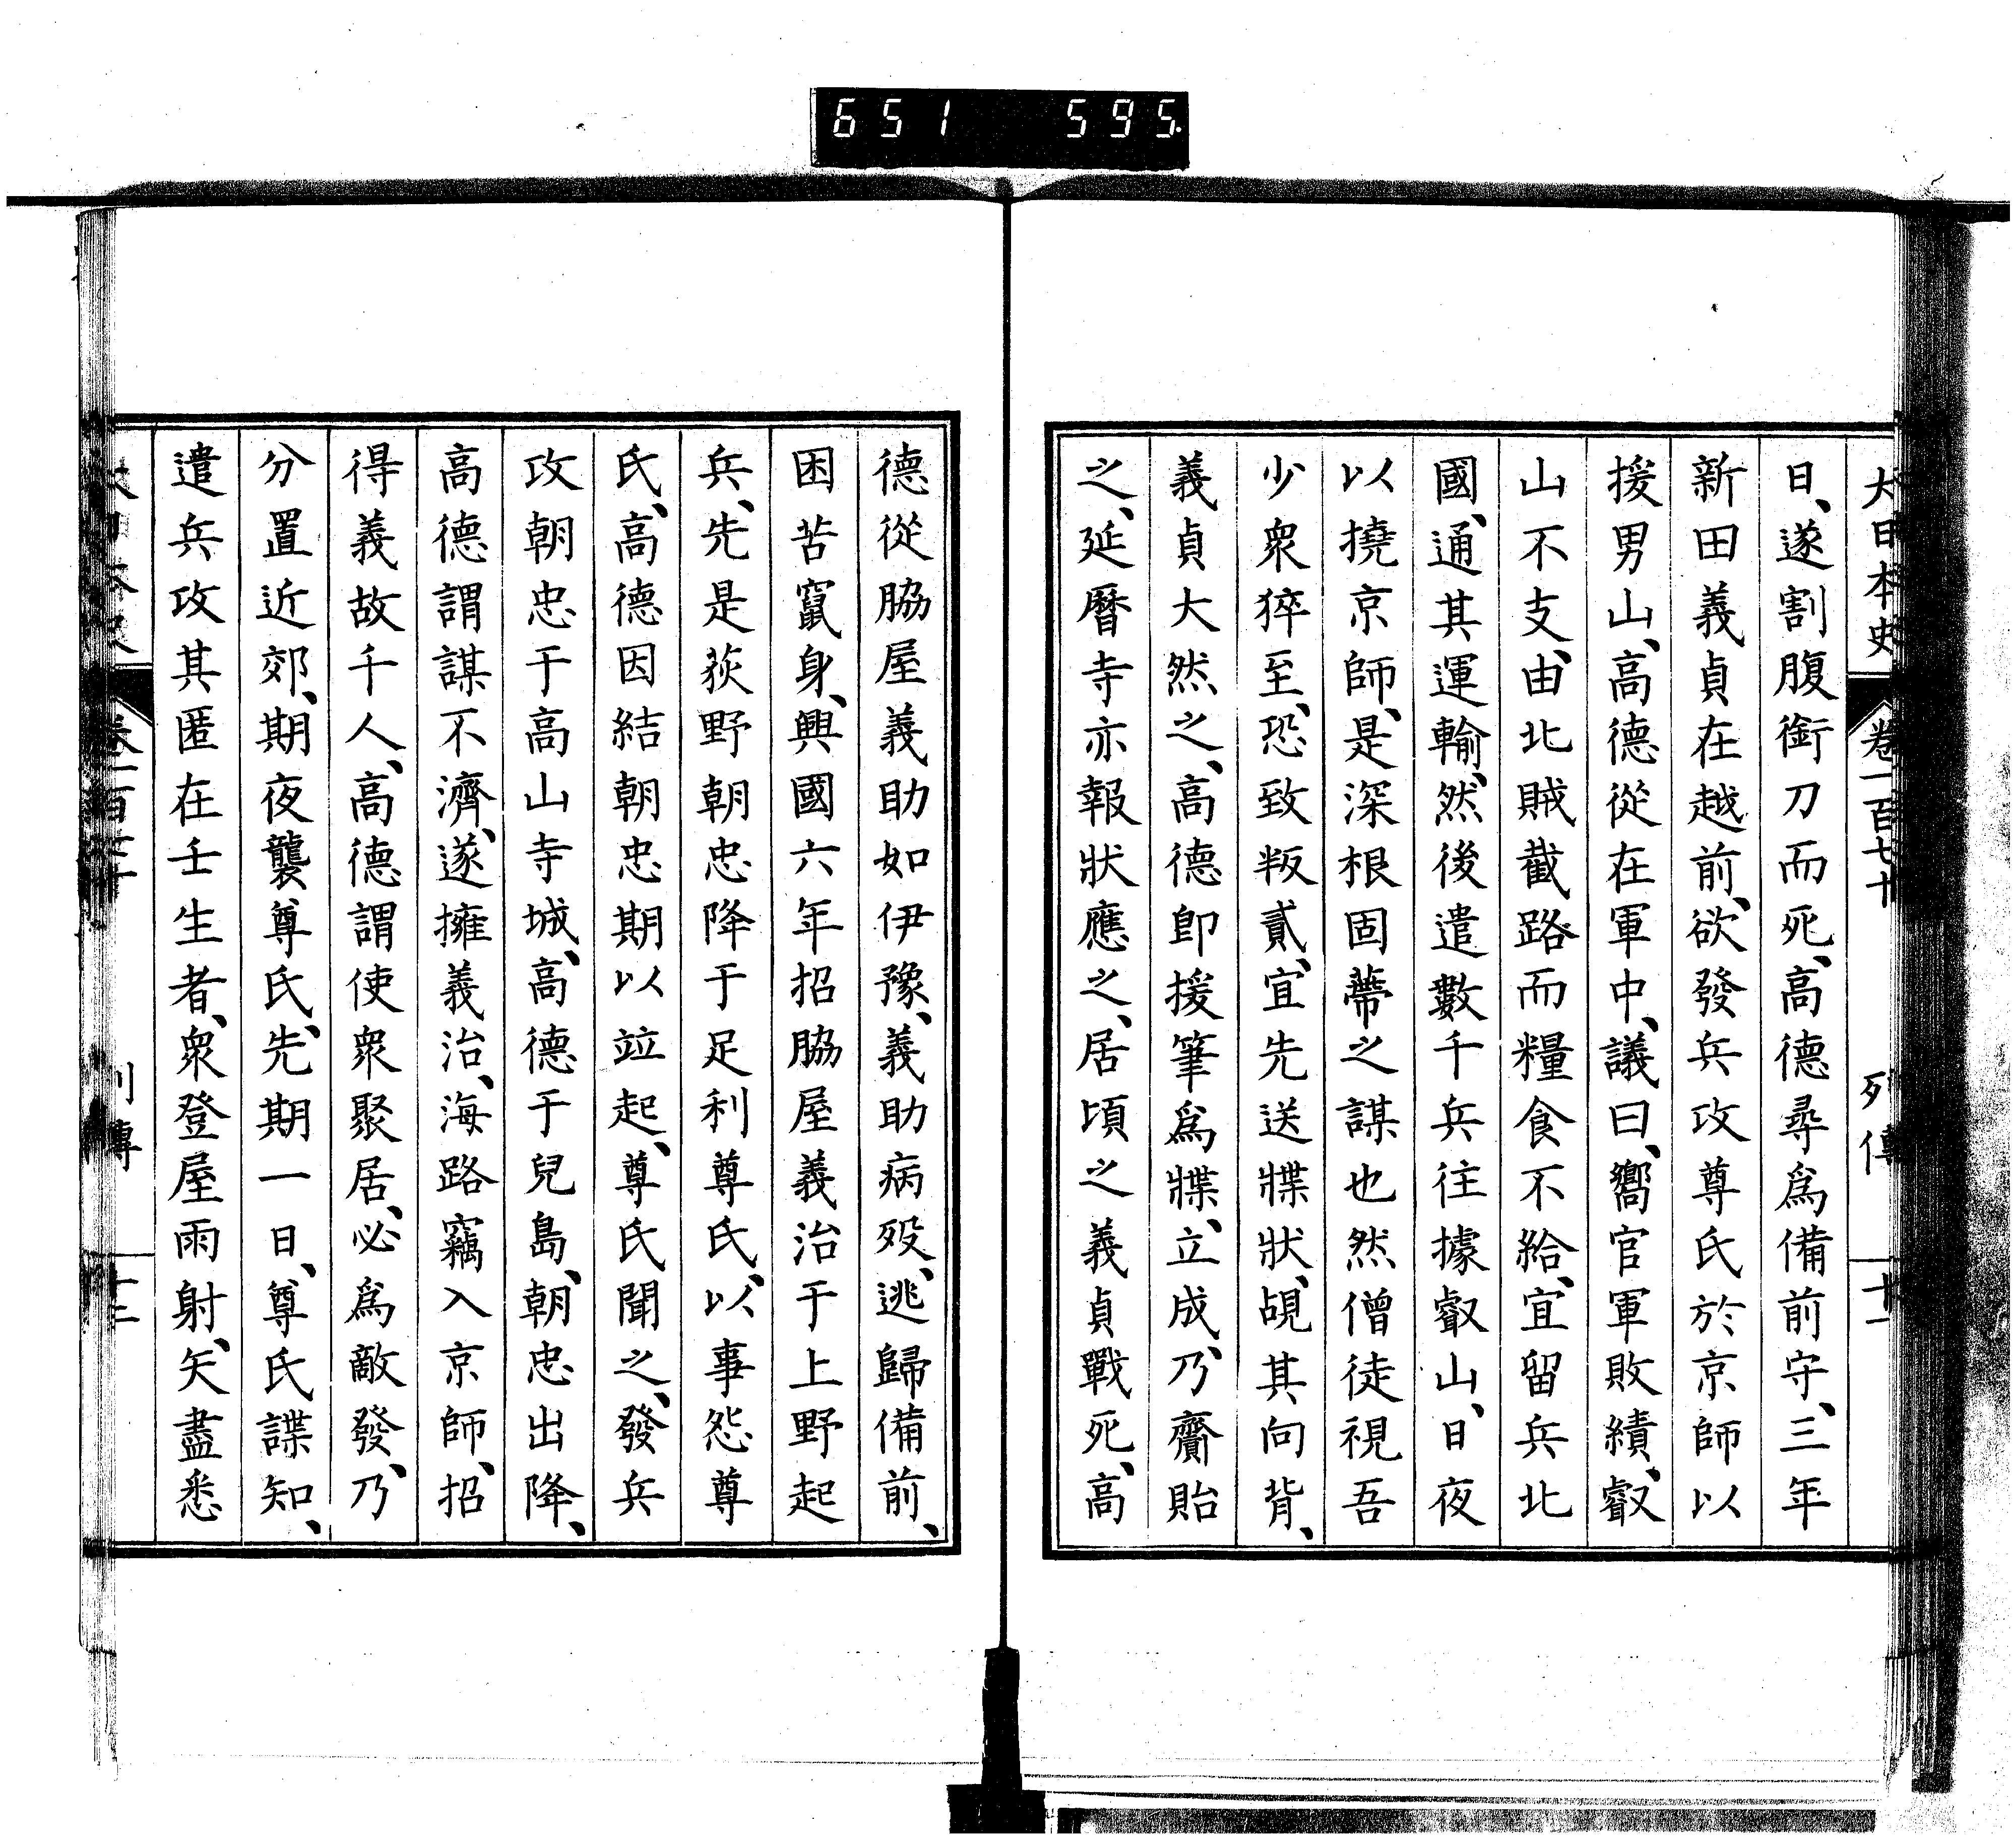 651 595.
大日本史 卷一百七十 列傳 十一
日、遂割腹銜刀而死、高德尋爲備前守、三年
新田義貞在越前、欲發兵攻尊氏於京師以
援男山、高德從在軍中、議曰、嚮官軍敗績、叡
山不支、由北賊截路而糧食不給、宜留兵北
國、通其運輸、然後遣數千兵往據叡山、日夜
以撓京師、是深根固蔕之謀也然僧徒視吾
少衆猝至、恐致叛貳、宜先送牒狀、覘其向背、
義貞大然之、高德卽援筆爲牒、立成、乃齎貽
之、延曆寺亦報狀應之、居頃之義貞戰死、高
德從脇屋義助如伊豫、義助病歿、逃歸備前、
困苦竄身、興國六年招脇屋義治于上野起
兵、先是荻野朝忠降于足利尊氏、以事怨尊
氏、高德因結朝忠期以竝起、尊氏聞之、發兵
攻朝忠于高山寺城、高德于兒島、朝忠出降、
高德謂謀不濟、遂擁義治、海路竊入京師、招
得義故千人、高德謂使衆聚居、必爲敵發、乃
分置近郊、期夜襲尊氏、先期一日、尊氏諜知、
遣兵攻其匿在壬生者、衆登屋雨射、矢盡悉
列傳 十二